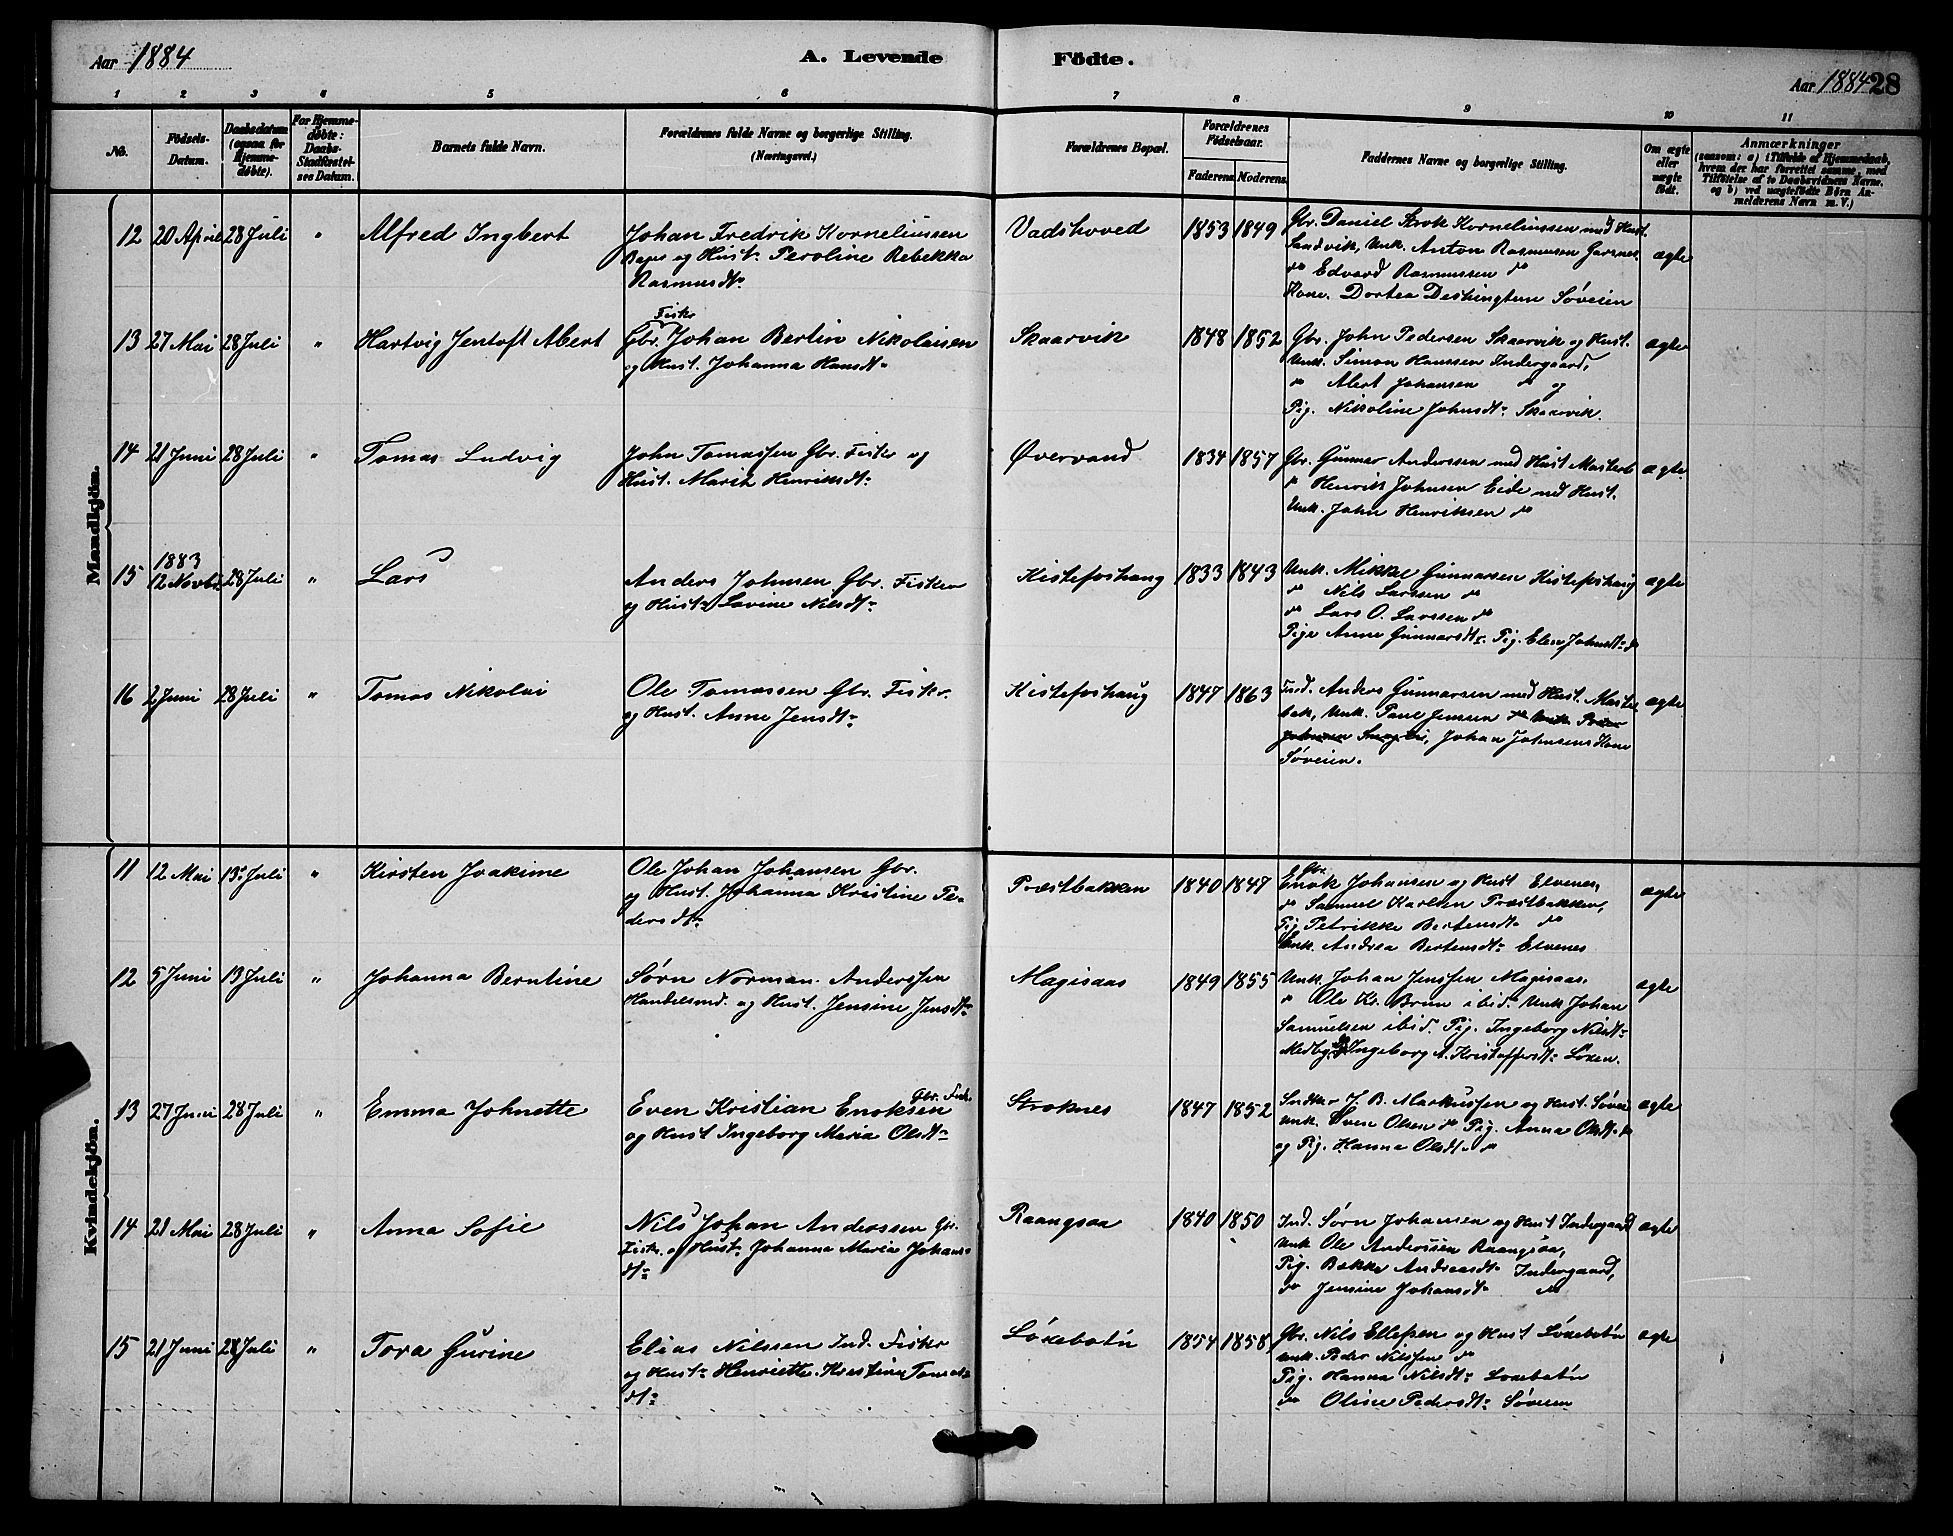 Aar 1884
A. Levende Födte.
Aar 1884 28
1 2 3 4 5 6 7 8 9 10 11
No.
Födsels-Datum.
Daabsdatum (ogsaa for Hjemmedøbte).
For Hjemmedøbte: Daabs-Stadfæstelses Datum.
Barnets fulde Navn.
Forældrenes fulde Navne og borgerlige Stilling. (Næringsvei.)
Forældrenes Bopæl.
Forældrenes Födselsaar.
Faderens Moderens
Faddernes Navne og borgerlige Stilling.
Om ægte eller uægte födt.
Anmærkninger
(saasom: a) i Tilfælde af Hjemmedaab, hvem der har forrettet samme, med Tilföielse af to Daabsvidners Navne, og b) ved uægtefödte Börn Anmelderens Navn m. V.)
Mandkjön.
12 20 April 28 Juli " Alfred Ingbert
Johan Fredrik Korneliussen
og Hust. Peroline Rebekka
Rasmusdtr.
Vadshoved 1853 1849
Gbr. Daniel Krok Korneliussen med Hust.
Sandvik, Unk. Anton Rasmussen
do Edvard Rasmussen do
Kone. Dortea Søveien
ægte
13 27 Mai 28 Juli " Hartvig Jentoft Albert
Fisker
Gbr. Johan Berlin Nikolaisen
og Hust. Johanna Hansdtr
Skaarvik 1848 1852
Gbr. John Pedersen Skaarvik og Hust.
Unk. Simon Hanssen Indergaard,
do Albert Johansen do og
Pig. Nikoline Johnsdtr Skaarvik.
ægte
14 21 Juni 28 Juli " Tomas Ludvig
John Tomassen Gbr. Fisker og
Hust. Marith Henriksdtr
Øvervand 1834 1857
Gbr. Gunnar Anderssen med Hust
do Henrik Johnsen Eide med Hust.
Unk. John Henriksen do
ægte
15 1883 12 Novbr. 28 Juli " Lars
Anders Johnsen Gbr. Fisker
og Hust. Lovine Nilsdtr
Kistefoshaug 1833 1843
Unk. Mikkel Gunnarsen Kistefoshaug
do Nils Larssen do
do Lars O. Larssen do
Pige Anne Gunnarsdtr. Pig. Elen Johnsdtr do
ægte
16 2 Juni 28 Juli " Tomas Nikolai
Ole Tomassen Gbr. Fisker.
og Hust. Anne Jensdtr
Kistefoshaug 1847 1863
Ind. Anders Gunnarsen med Hust.
Unk. Paul Jensen do
Johan Johnsens Kone
Søveien.
ægte
Kvindekjön.
11 12 Mai 13 Juli " Kirsten Joakime
Ole Johan Johansen Gbr.
og Hust. Johanna Kristine Pe-
dersdtr
Præstbakken 1840 1847
Gbr.
Enok Johansen og Hust Elvenes,
do Samuel Karlsen Præstbakken,
Pig. Petrikke Bertensdtr do
Andrea Bertensdtr Elvenes
ægte
12 5 Juni 13 Juli " Johanna Berntine
Sørn Norman. Anderssen
Handelsmd. og Hust. Jensine Jensdtr
Magisaas 1849 1855
Unk. Johan Jenssen Magisaas.
do Ole Kr. Brun ibid. Unk. Johan
Samuelsen ibid. Pig. Ingeborg Nilsdtr
Medby. Ingeborg A. Kristoffersdtr Løxen.
ægte
13 27 Juni 28 Juli " Emma Johnette
Gbr. Fisk.
Even Kristian Enoksen
og Hust Ingeborg Maria Olsdtr
Stroknes 1847 1852
J. B. Markussen og Hust. Søvei
Unk. Sven Olsen do Pig. Anna Olsdtr do
og Pig. Hanna Olsdtr do
ægte
14 21 Mai 28 Juli " Anna Sofie
Nils Johan Anderssen Gbr.
Fisker. og Hust. Johanna Maria Johans-
dtr
Raangsaa 1840 1850
Ind. Sørn Johansen og Hust Indergaard
Unk Ole Anderssen Raangsaa,
Pig. Bække Andreasdtr Indergaard,
do Jensine Johansdtr do
ægte
15 21 Juni 28 Juli " Tora Gurine
Elias Nilssen Ind. Fisker
og Hust. Henriette Kirstine Tomas-
dtr
Løxebotn 1854 1858
Gbr. Nils Ellefsen og Hust Løxebotn
Unk. Peder Nilssen do
Pig. Hanna Nilsdtr Løxebotn
do Oline Pedersdtr Søveien
ægte